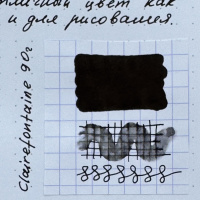 отличный цвет как
и для рисования.
Clairefontaine 90г